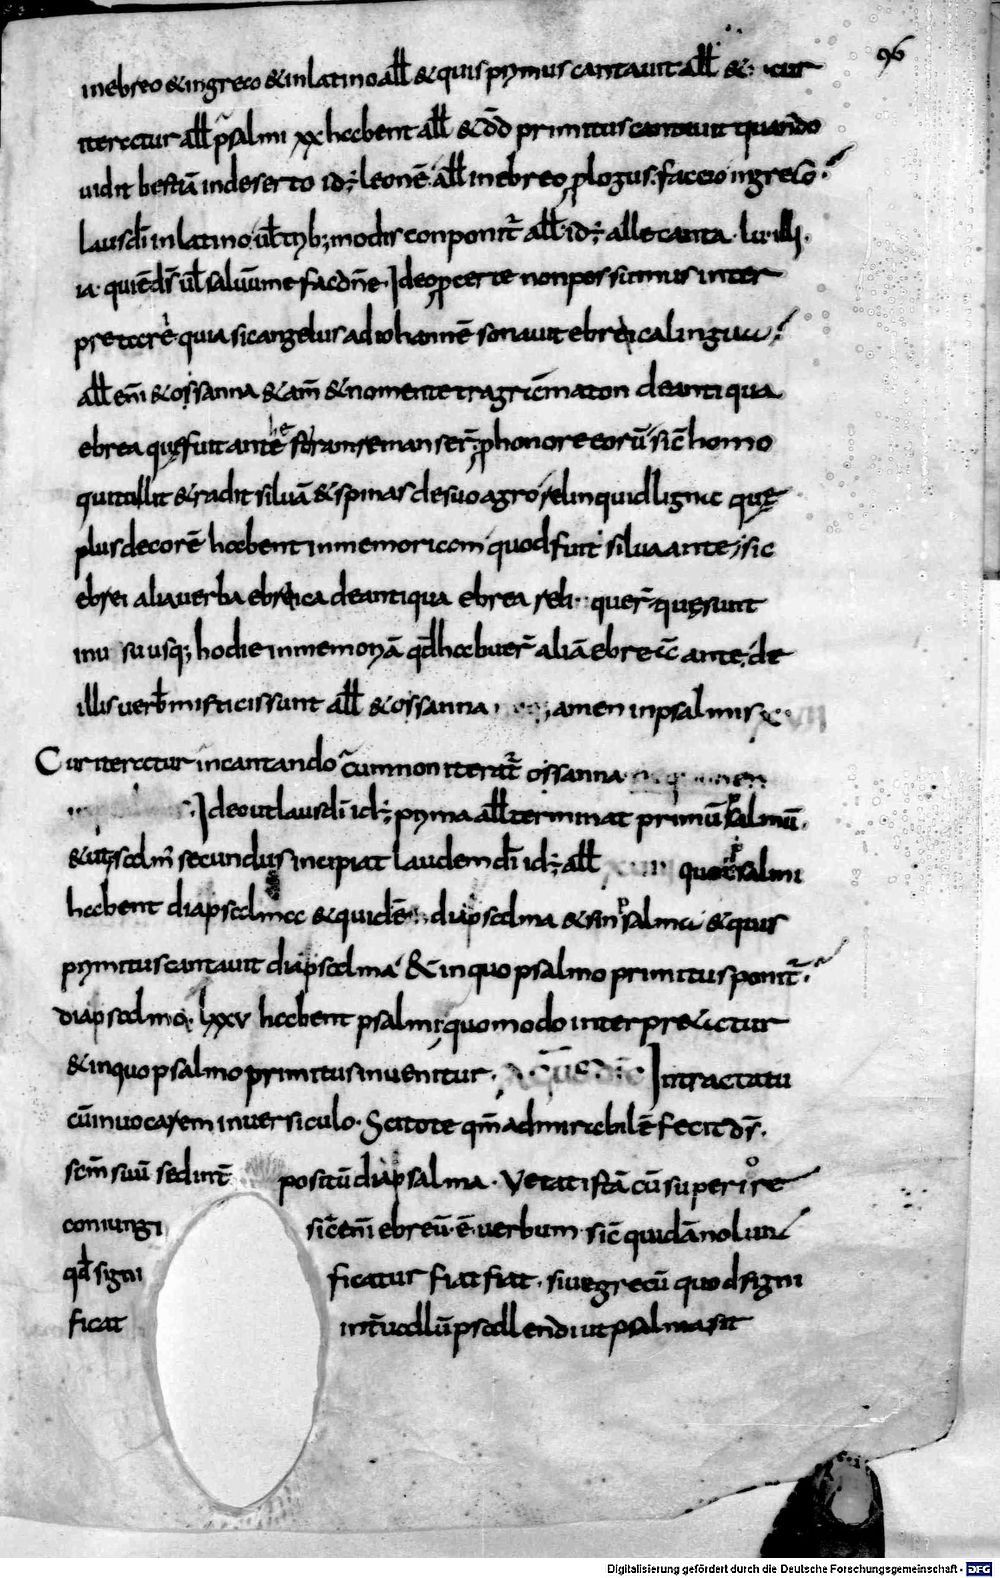 96
inebreo & ingreco & inlatino all̄ & quis prymus cantauit all̄ & cur
iteretur all̄ psalmi xx habent all̄ & dd̄ primitus cantauit quando
uidit bestiā indeserto id÷ leonē. all̄ inebreo plogus. faccio ingreco
Lausdī inlatino. ul̄ tryb; modis conponit̄ all̄. id÷ alle canta. lu. illi.
ia. quiēds̄ ul̄ saluūme facdn̄e. Ideo pcerte nonpossumus inter
pretare quia sicangelus adiohannē sonauit ebreica lingua
all̄ em̄ & ossanna & am̄ & nomente tragrāmaton deantiqua
ebrea quę fuit ante remanser̄ phonore eorū sic̄ homo
quitollit & radit siluā & spinas desuo agro relinquid ligna quę
plus decorē habent inmemoriam quod fuit silua ante sic
ebrei alia uerba ebreica deantiqua ebrea quer̄ quęsunt
usq; hodie inmemoryā qd̄ habuer̄ aliā ebreic̄ ante. de
illis uerb̄ misticis sunt all̄ & ossanna amen inpsalmis
Cur iteretur incantando cum non iterat̄ ossanna
Ideo ut lausdī id÷ pryma all̄ terminat primū psalmū.
& ut secundus incipiat laudem dī id÷ all̄ quot psalmi
habent diapsalma & quidē diapsalma & sinpsalma & quis
prymitus cantauit diapsalma & inquo psalmo primitus ponit̄.
diapsalma. lxxv habent psalmi; quomodo interpretatur
& inquo psalmo primitus inuenitur. Intractatu
cū inuocarem inuersiculo. Scitote qm̄ admirabilē fecit ds̄.
scm̄ suū sed int̄ positū diapsalma. Vetat istā cū superiore
coniungi sic̄ em̄ ebreū. ē. uerbum. sic̄ quidā nolun
qd̄ signi ficatur fiat fiat. siue grecū quod signi
ficat int̄uallū psallendi ut psalma sit
Digitalisierung gefördert durch die Deutsche Forschungsgemeinschaft - DFG